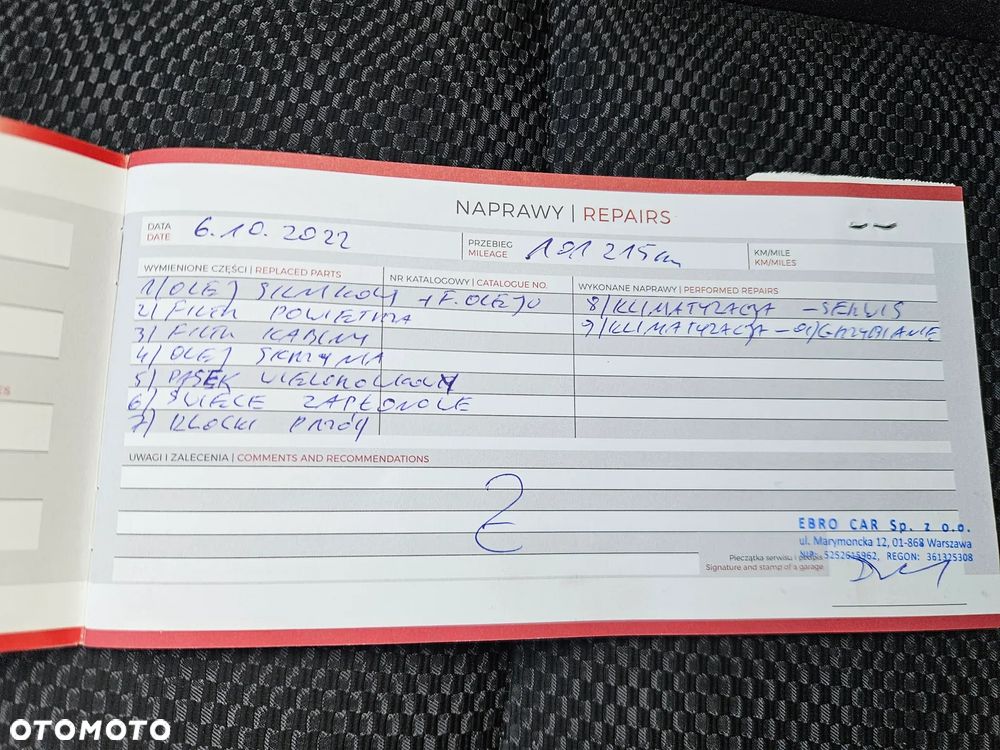 NAPRAWY | REPAIRS
DATA
DATE
6.10.2022
PRZEBIEG
MILEAGE
191 215 km
KM/MILE
KM/MILES
WYMIENIONE CZĘŚCI | REPLACED PARTS
NR KATALOGOWY | CATALOGUE NO.
WYKONANE NAPRAWY | PERFORMED REPAIRS
1/ OLEJ SILNIKOWY + F. OLEJU
2/ FILTR POWIETRZA
3/ FILTR KABINY
4/ OLEJ SKRZYNIA
5/ PASEK WIELOROWKOWY
6/ ŚWIECE ZAPŁONOWE
7/ KLOCKI PRZÓD
8/ KLIMATYZACJA - SERWIS
9/ KLIMATYZACJA - ODGRZYBIANIE
UWAGI I ZALECENIA | COMMENTS AND RECOMMENDATIONS
EBRO CAR Sp. z o.o.
ul. Marymoncka 12, 01-868 Warszawa
NIP: 5252615962, REGON: 361325308
Pieczątka serwisu i podpis
Signature and stamp of a garage
OTOMOTO